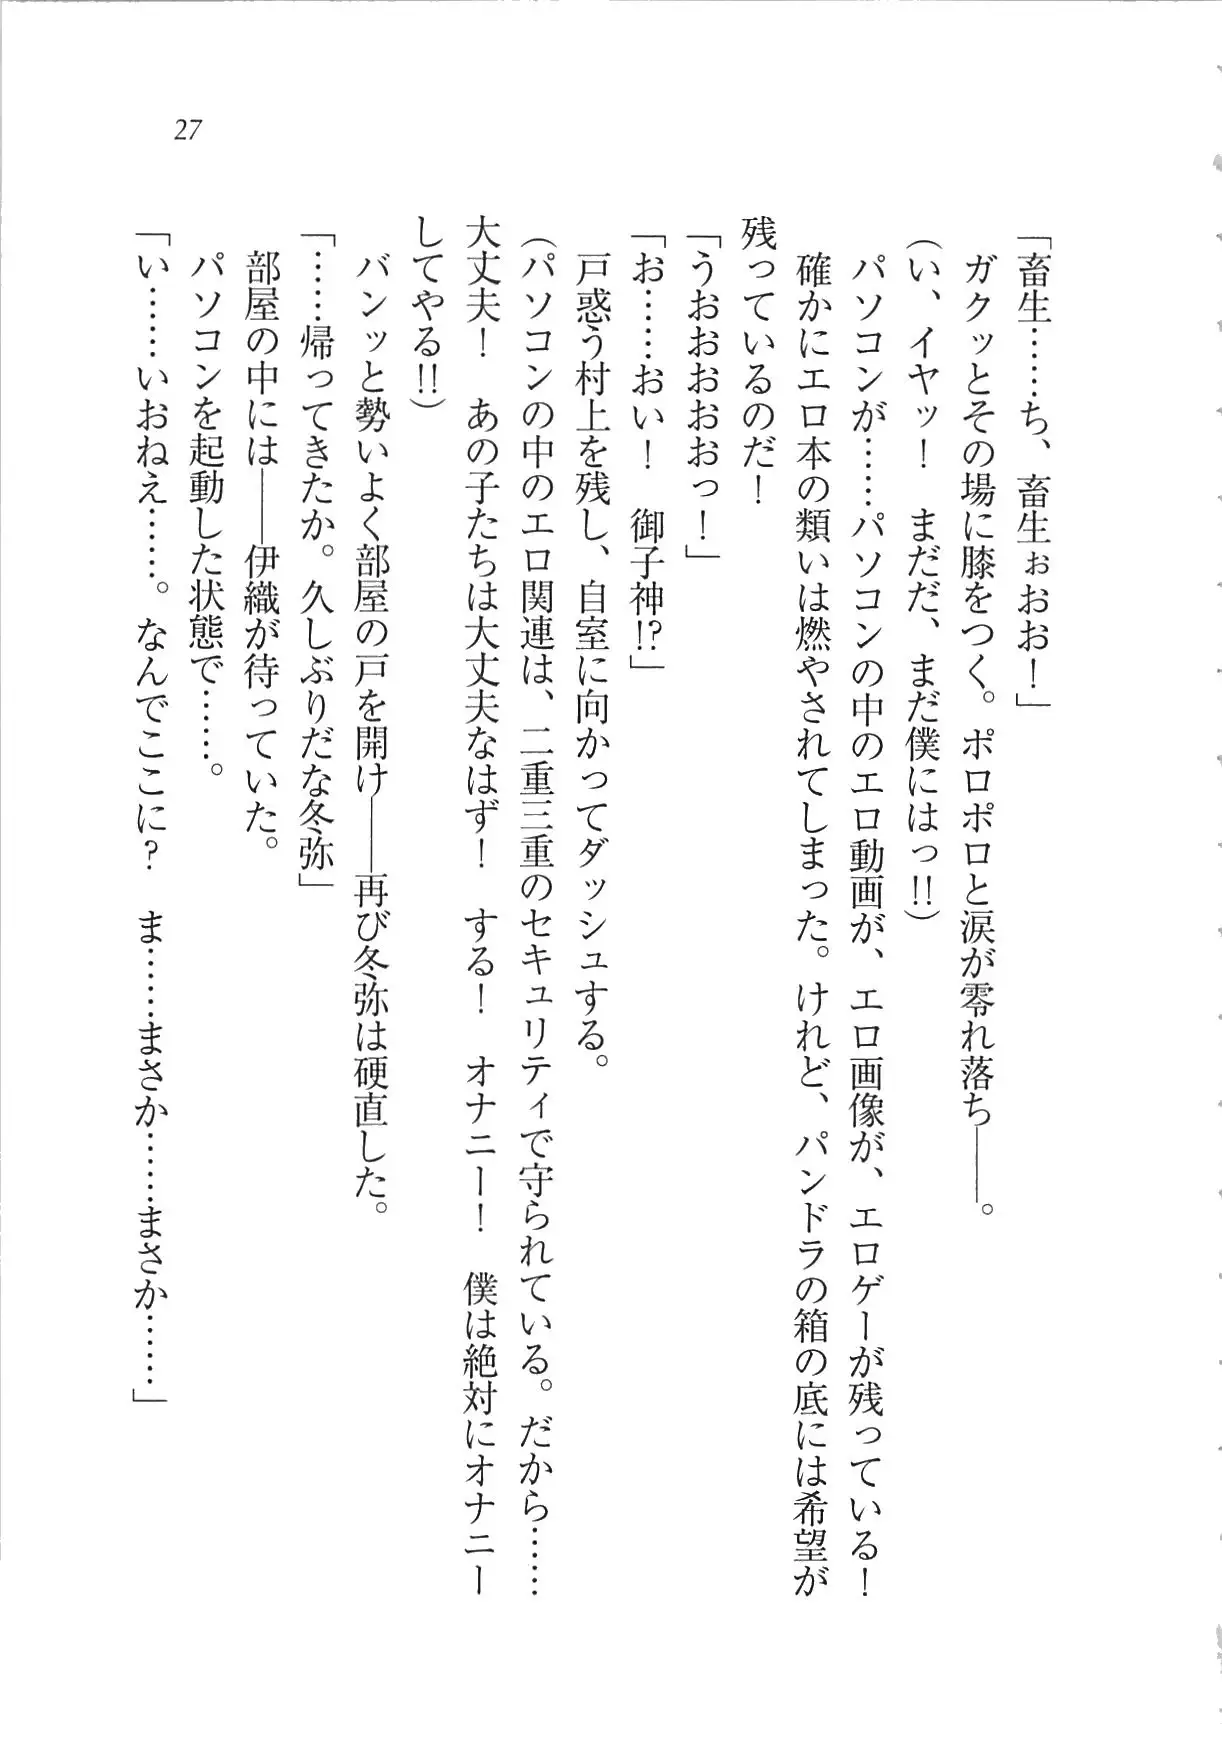 27
「畜生……ち、畜生ぉおお！」
　ガクッとその場に膝をつく。ポロポロと涙が零れ落ち――。
（い、イヤッ！　まだだ、まだ僕にはっ!!）
　パソコンが……パソコンの中のエロ動画が、エロ画像が、エロゲーが残っている！
　確かにエロ本の類いは燃やされてしまった。けれど、パンドラの箱の底には希望が
残っているのだ！
「うおおおおおっ！」
「お……おい！　御子神!?」
　戸惑う村上を残し、自室に向かってダッシュする。
（パソコンの中のエロ関連は、二重三重のセキュリティで守られている。だから……
大丈夫！　あの子たちは大丈夫なはず！　する！　オナニー！　僕は絶対にオナニー
してやる!!）
　バンッと勢いよく部屋の戸を開け――再び冬弥は硬直した。
「……帰ってきたか。久しぶりだな冬弥」
　部屋の中には――伊織が待っていた。
　パソコンを起動した状態で……。
「い……いおねえ……。なんでここに？　ま……まさか……まさか……」